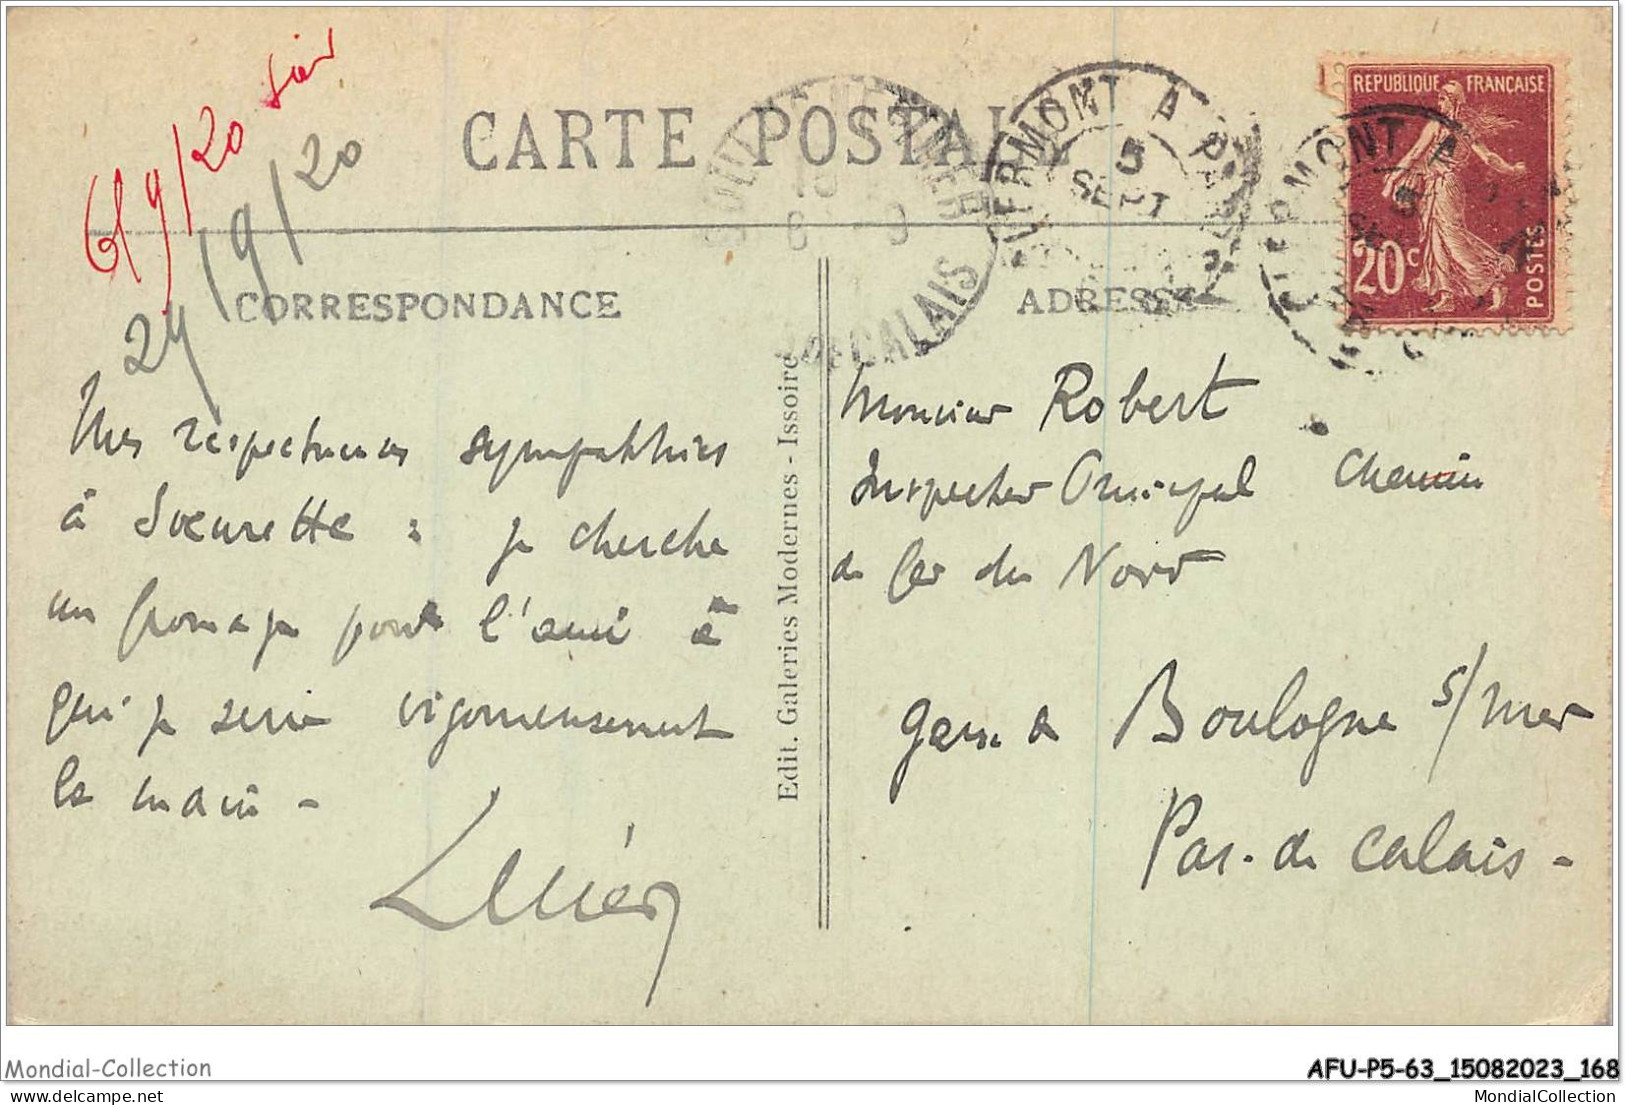 6/9/20 soir
24/9/20
CARTE POSTALE
CLERMONT A PARIS
5
SEPT
REPUBLIQUE FRANÇAISE
20c
POSTES
BOULOGNE
DE CALAIS
CORRESPONDANCE
ADRESSE
Mes respectueuses sympathies
à Soeurette : je cherche
un fromage pour l'ami à
qui je serre vigoureusement
la main -
Edit. Galeries Modernes - Issoire
Monsieur Robert
Inspecteur Principal Chemin
de fer du Nord
gare de Boulogne s/mer
Pas-de Calais -
Mondial-Collection
AFU-P5-63_15082023_168
delcampe.net
MondialCollection